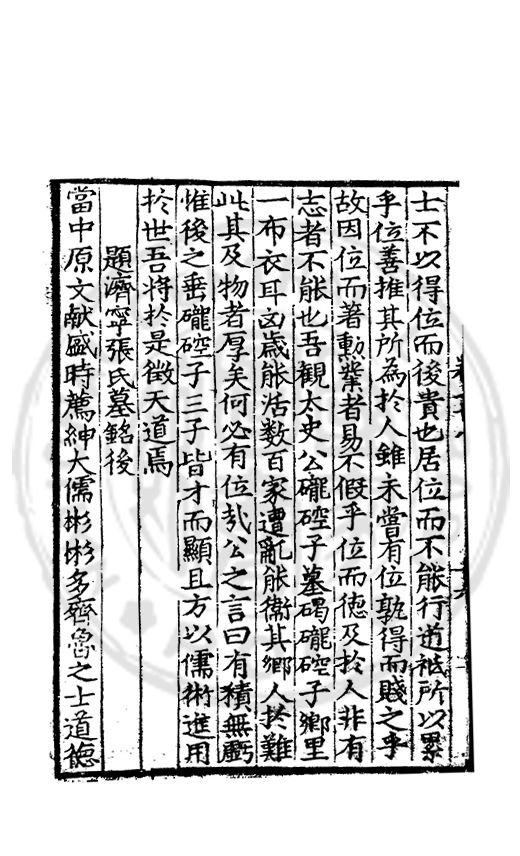 士不以得位而後貴也居位而不能行道秪所以累
乎位善推其所為扵人雖未嘗有位孰得而賤之乎
故因位而著勲業者易不假乎位而德及扵人非有
志者不能也吾觀太史公礲硿子墓碣礲硿子鄉里
一布衣耳凶歲能活数百家遭亂能衞其鄉人扵難
此其及物者厚矣何必有位㢤公之言曰有積無虧
惟後之垂礲硿子三子皆才而顯且方以儒術進用
扵世吾將扵是徵天道焉
題濟寧張氏墓銘後
當中原文献盛時薦紳大儒彬彬多齊魯之士道德